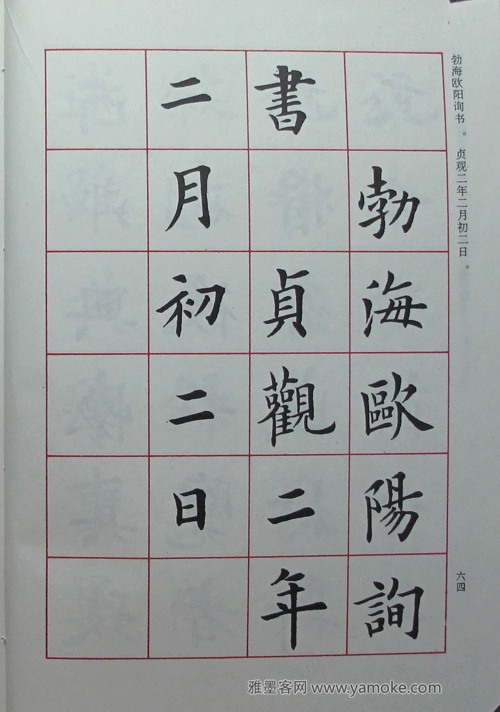 勃海欧阳询书。贞观二年二月初二日。
勃海歐陽詢
書 貞觀二年
二月初二日
六四
雅墨客网 www.yamoke.com